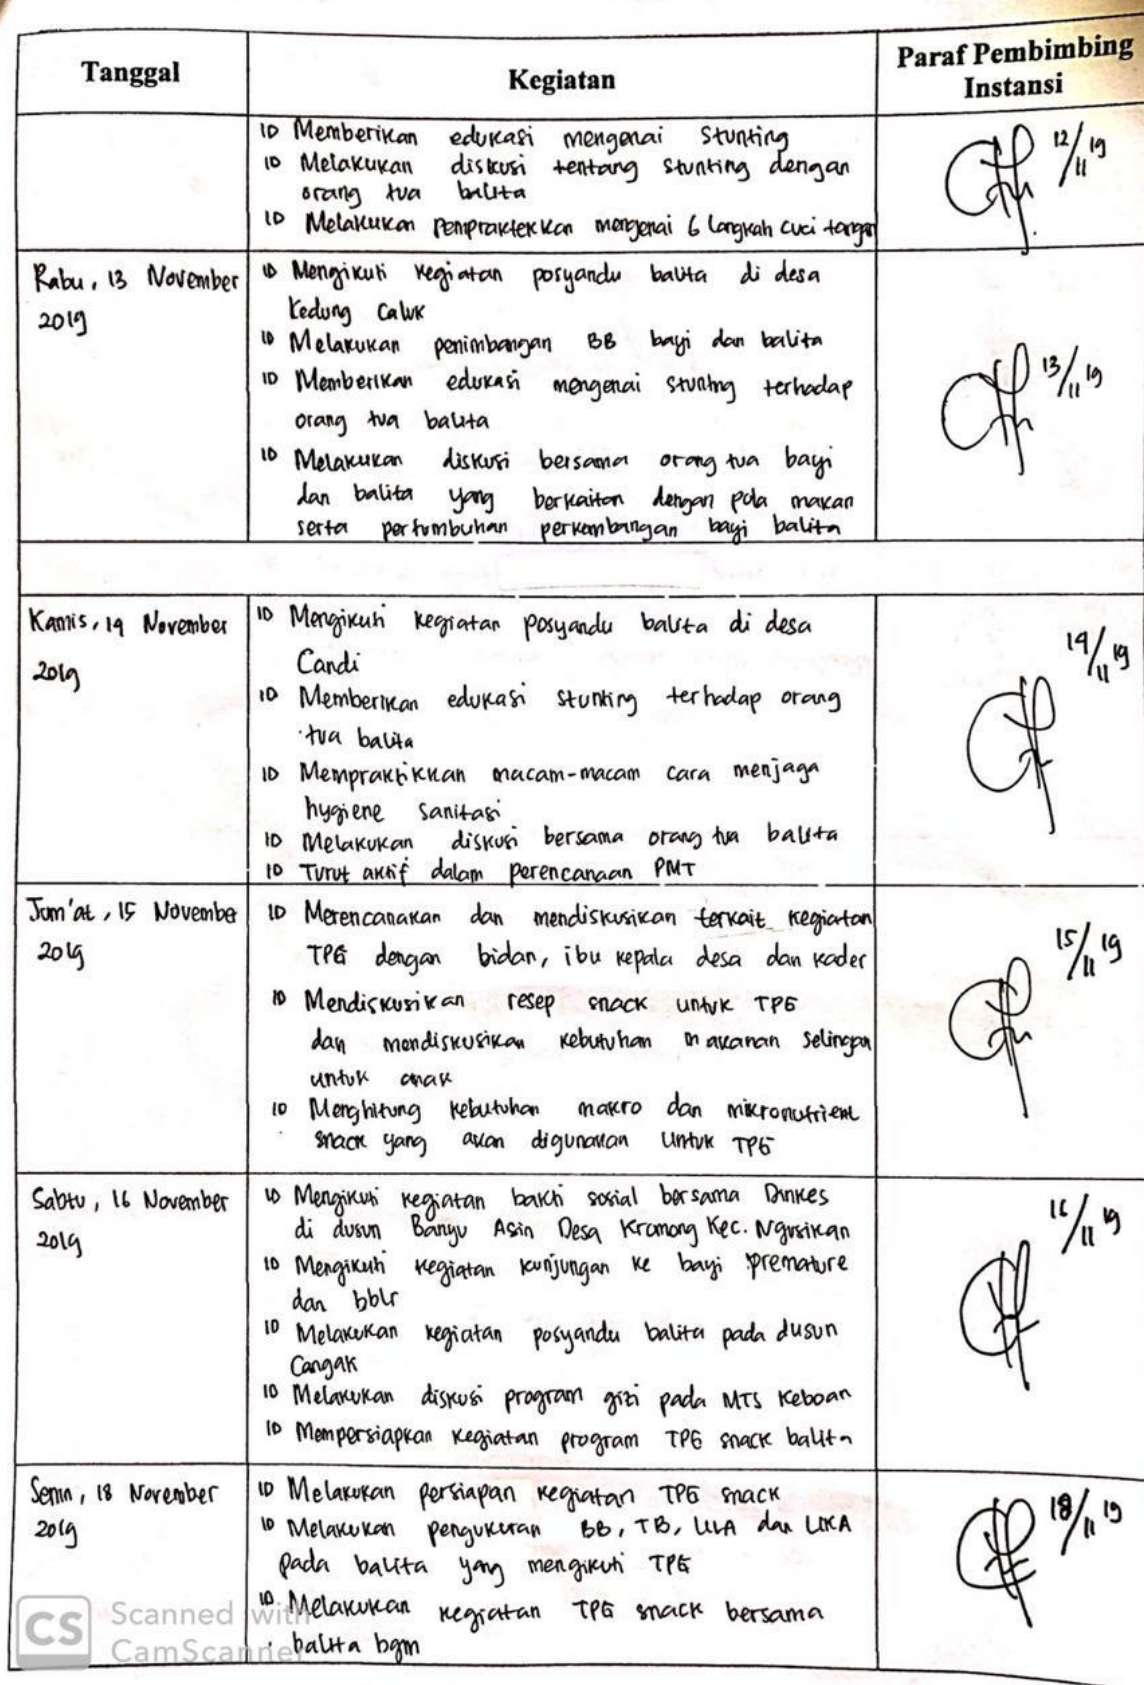 Tanggal
Kegiatan
Paraf Pembimbing
Instansi
Memberikan edukasi mengenai Stunting
Melakukan diskusi tentang stunting dengan
orang tua balita
Melakukan pempraktekkan mengenai 6 langkah cuci tangan
12/11 19
Rabu, 13 November
2019
Mengikuti kegiatan posyandu balita di desa
Kedung Caluk
Melakukan penimbangan BB bayi dan balita
Memberikan edukasi mengenai stunting terhadap
orang tua balita
Melakukan diskusi bersama orang tua bayi
dan balita yang berkaitan dengan pola makan
serta pertumbuhan perkembangan bayi balita
13/11 19
Kamis, 14 November
2019
Mengikuti kegiatan posyandu balita di desa
Candi
Memberikan edukasi stunting terhadap orang
tua balita
Mempraktikkan macam-macam cara menjaga
hygiene sanitasi
Melakukan diskusi bersama orang tua balita
Turut aktif dalam perencanaan PMT
14/11 19
Jum'at, 15 November
2019
Merencanakan dan mendiskusikan terkait kegiatan
TPG dengan bidan, ibu kepala desa dan kader
Mendiskusikan resep snack untuk TPG
dan mendiskusikan kebutuhan makanan selingan
untuk anak
Menghitung kebutuhan makro dan mikronutrient
snack yang akan digunakan untuk TPG
15/11 19
Sabtu, 16 November
2019
Mengikuti kegiatan bakti sosial bersama Dinkes
di dusun Banyu Asin Desa Kromong Kec. Ngusikan
Mengikuti kegiatan kunjungan ke bayi premature
dan bblr
Melakukan kegiatan posyandu balita pada dusun
Cangak
Melakukan diskusi program gizi pada MTS Keboan
Mempersiapkan kegiatan program TPG snack balita
16/11 19
Senin, 18 November
2019
Melakukan persiapan kegiatan TPG snack
Melakukan pengukuran BB, TB, LILA dan LIKA
pada balita yang mengikuti TPG
Melakukan kegiatan TPG snack bersama
balita bgm
18/11 19
CS Scanned with
CamScanner